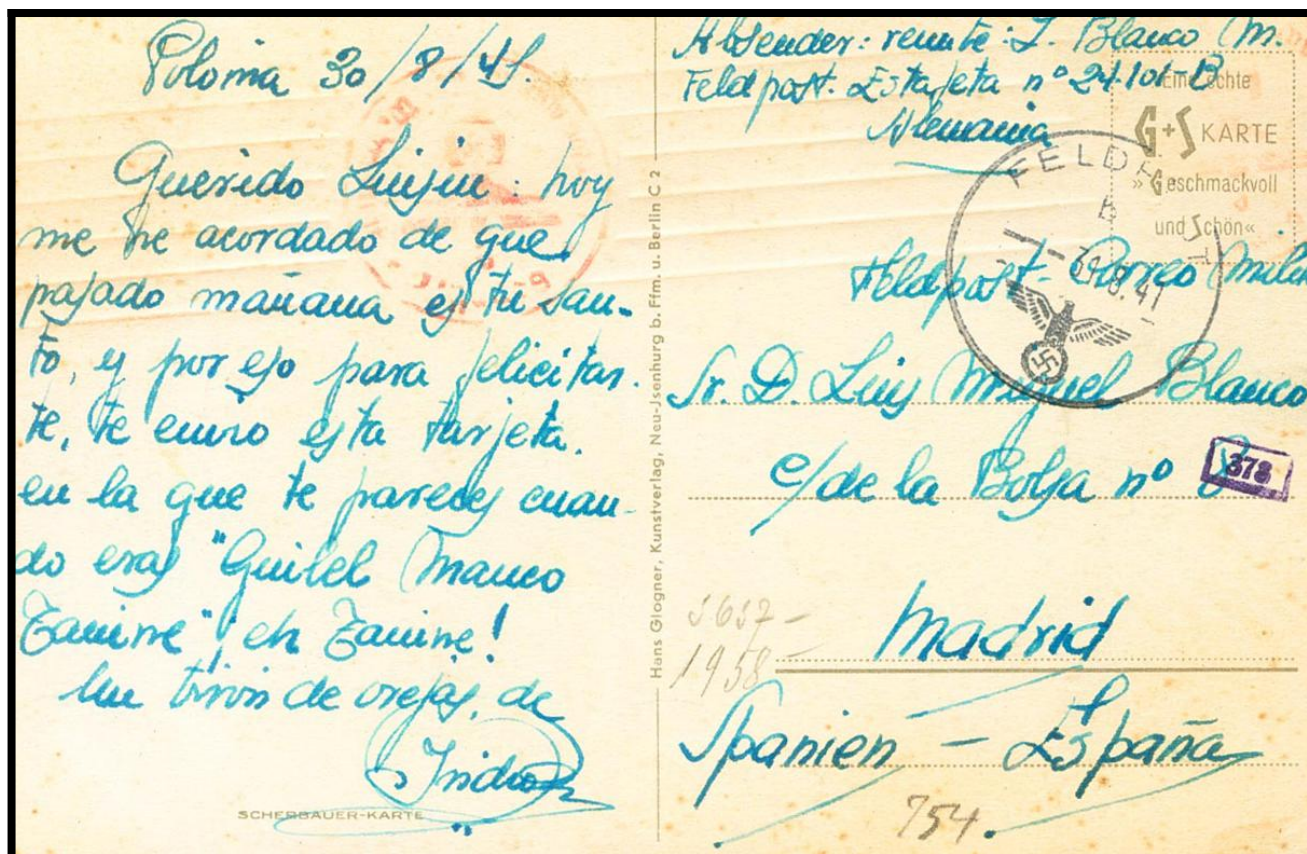 Polonia 30/8/41.
Querido Luisín: hoy
me he acordado de que
pasado mañana es tu san-
to, y por eso para felicitar.
te, te envio esta tarjeta.
en la que te pareces cuan-
do eras "Guilel Manco
eh
Un tirón de orejas, de
Isidro
SCHERBAUER-KARTE
Hans Glogner, Kunstverlag, Neu-Jsenburg b. Ffm. u. Berlin C 2
Absender: remite: I. Blanco M.
Feldpost. Estafeta nº 24101-B
Alemania
Eine echte
G+S KARTE
»Geschmackvoll
und Schön«
FELDP
b
30.8.41
Feldpost - Correo Milit
Sr. D. Luis Miguel Blanco
c/ de la Bolsa nº 8
378
Madrid
1958-
Spanien - España
754.